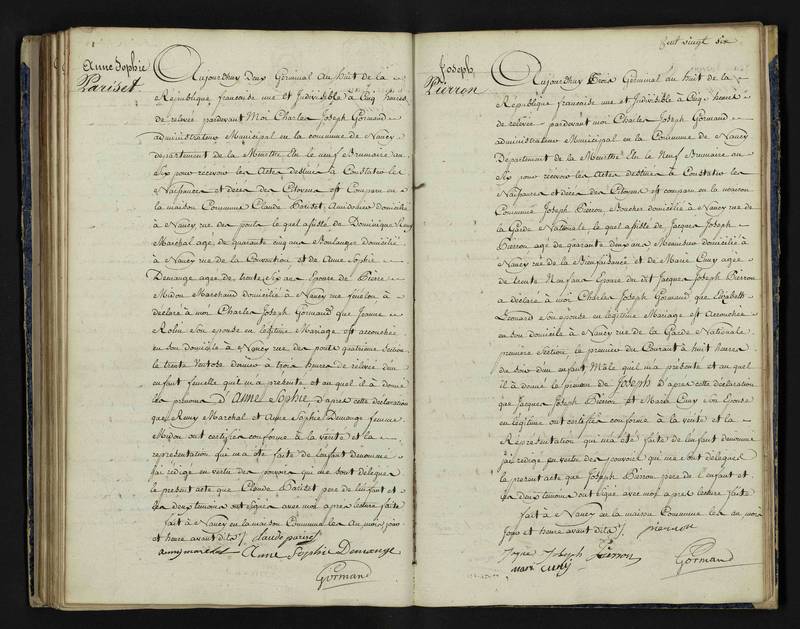 Anne Sophie
Pariset
Aujourdhuy Deux Germinal an huit de la
République francoise une et Indivisible à Cinq heures
de relevée pardevant Moi Charles Joseph Gormand
administrateur Municipal en la commune de Nancy
departement de la Meurthe Elu le neuf Brumaire an
Six pour recevoir les Actes destinés à Constater les
Naissances et décès des Citoyens est Comparu en
la maison Commune Claude Pariset, domicilié
à Nancy rue des ponts le quel assisté de Dominique Remy
Marchal agé de quarante cinq ans Boulanger domicilié
à Nancy rue de la Convention et de Anne Sophie
Demange agée de trente Six ans Epouse de Pierre
Midon Marchand domicilié à Nancy rue fénélon à
déclaré à moi Charles Joseph Gormand que Jeanne
Rolin Son épouse en légitime Mariage est accouchée
en son domicile à Nancy rue des ponts quatrieme Section
le trente Ventose dernier à trois heures de relevée d'un
enfant femelle quil m'a presenté et au quel il à donné
les prénoms d'Anne Sophie, d'apres cette déclaration
que Remy Marchal et Anne Sophie Demange femme
Midon ont certifiée conforme à la vérité et la
representation qui m'a été faite de l'enfant denommé
j'ai rédigé en vertu des pouvoirs qui me sont délégués
le present acte que Claude Pariset pere de l'enfant et
les deux temoins ont signé avec moi apres lecture faite
fait à Nancy en la maison Commune les an, mois, jour
et heure avant dits /. claude pariset
remy marchal Anne Sophie Demange
Gormand
Cent vingt six
Joseph
Pierron
Aujourdhuy Trois Germinal an huit de la
République francoise une et Indivisible à Cinq heures
de relevée pardevant moi Charles Joseph Gormand
administrateur Municipal en la Commune de Nancy
Departement de la Meurthe Elu le Neuf Brumaire an
Six pour recevoir les Actes destinés à Constater les
Naissances et décès des Citoyens est comparu en la maison
Commune Joseph Pierron Boucher domicilié à Nancy rue de
la Garde Nationale le quel assisté de Jacques Joseph
Pierron agé de quarante deux ans Menuisier domicilié à
Nancy rue de la Bienfaisance et de Marie Cuny agée
de trente Neuf ans Epouse du dit Jacques Joseph Pierron
a déclaré à moi Charles Joseph Gormand que Elizabeth
Leonard Son épouse en légitime Mariage est Accouchée
en son domicile à Nancy rue de la Garde Nationale
premiere Section le premier du Courant à huit heures
du soir d'un enfant Mâle quil m'a présenté et au quel
il à donné le prenom de Joseph d'apres cette déclaration
que Jacques Joseph Pierron et Marie Cuny Son Epouse
en légitime ont certifiée conforme à la vérité et la
Représentation qui m'a été faite de l'enfant denommé
j'ai rédigé en vertu des pouvoirs qui me sont délégués
le present acte que Joseph Pierron pere de l'enfant et
les deux temoins ont signé avec moi apres lecture faite
fait à Nancy en la maison Commune les an mois
jour et heure avant dits /. pierron
Joseph Pierron
marie cuny Gormand